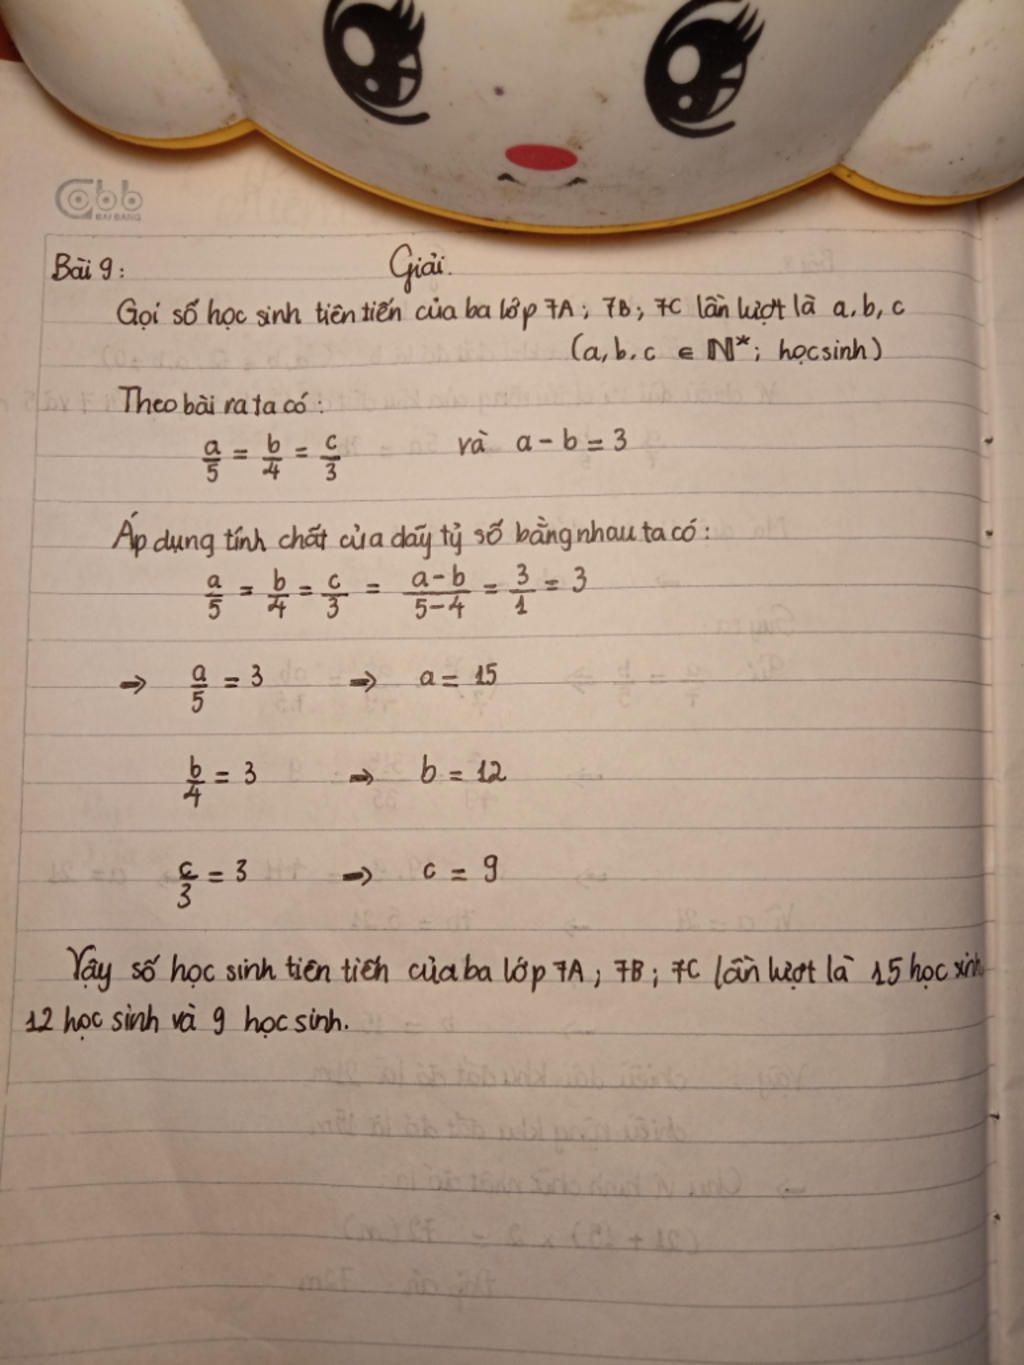 Cabb
BAI BANG
Bài 9: Giải.
Gọi số học sinh tiên tiến của ba lớp 7A; 7B; 7C lần lượt là a, b, c
(a, b, c ∈ ℕ*; học sinh)
Theo bài ra ta có:
a/5 = b/4 = c/3 và a - b = 3
Áp dụng tính chất của dãy tỷ số bằng nhau ta có:
a/5 = b/4 = c/3 = (a-b)/(5-4) = 3/1 = 3
⇒ a/5 = 3 ⇒ a = 15
b/4 = 3 ⇒ b = 12
c/3 = 3 ⇒ c = 9
Vậy số học sinh tiên tiến của ba lớp 7A; 7B; 7C lần lượt là 15 học sinh
12 học sinh và 9 học sinh.